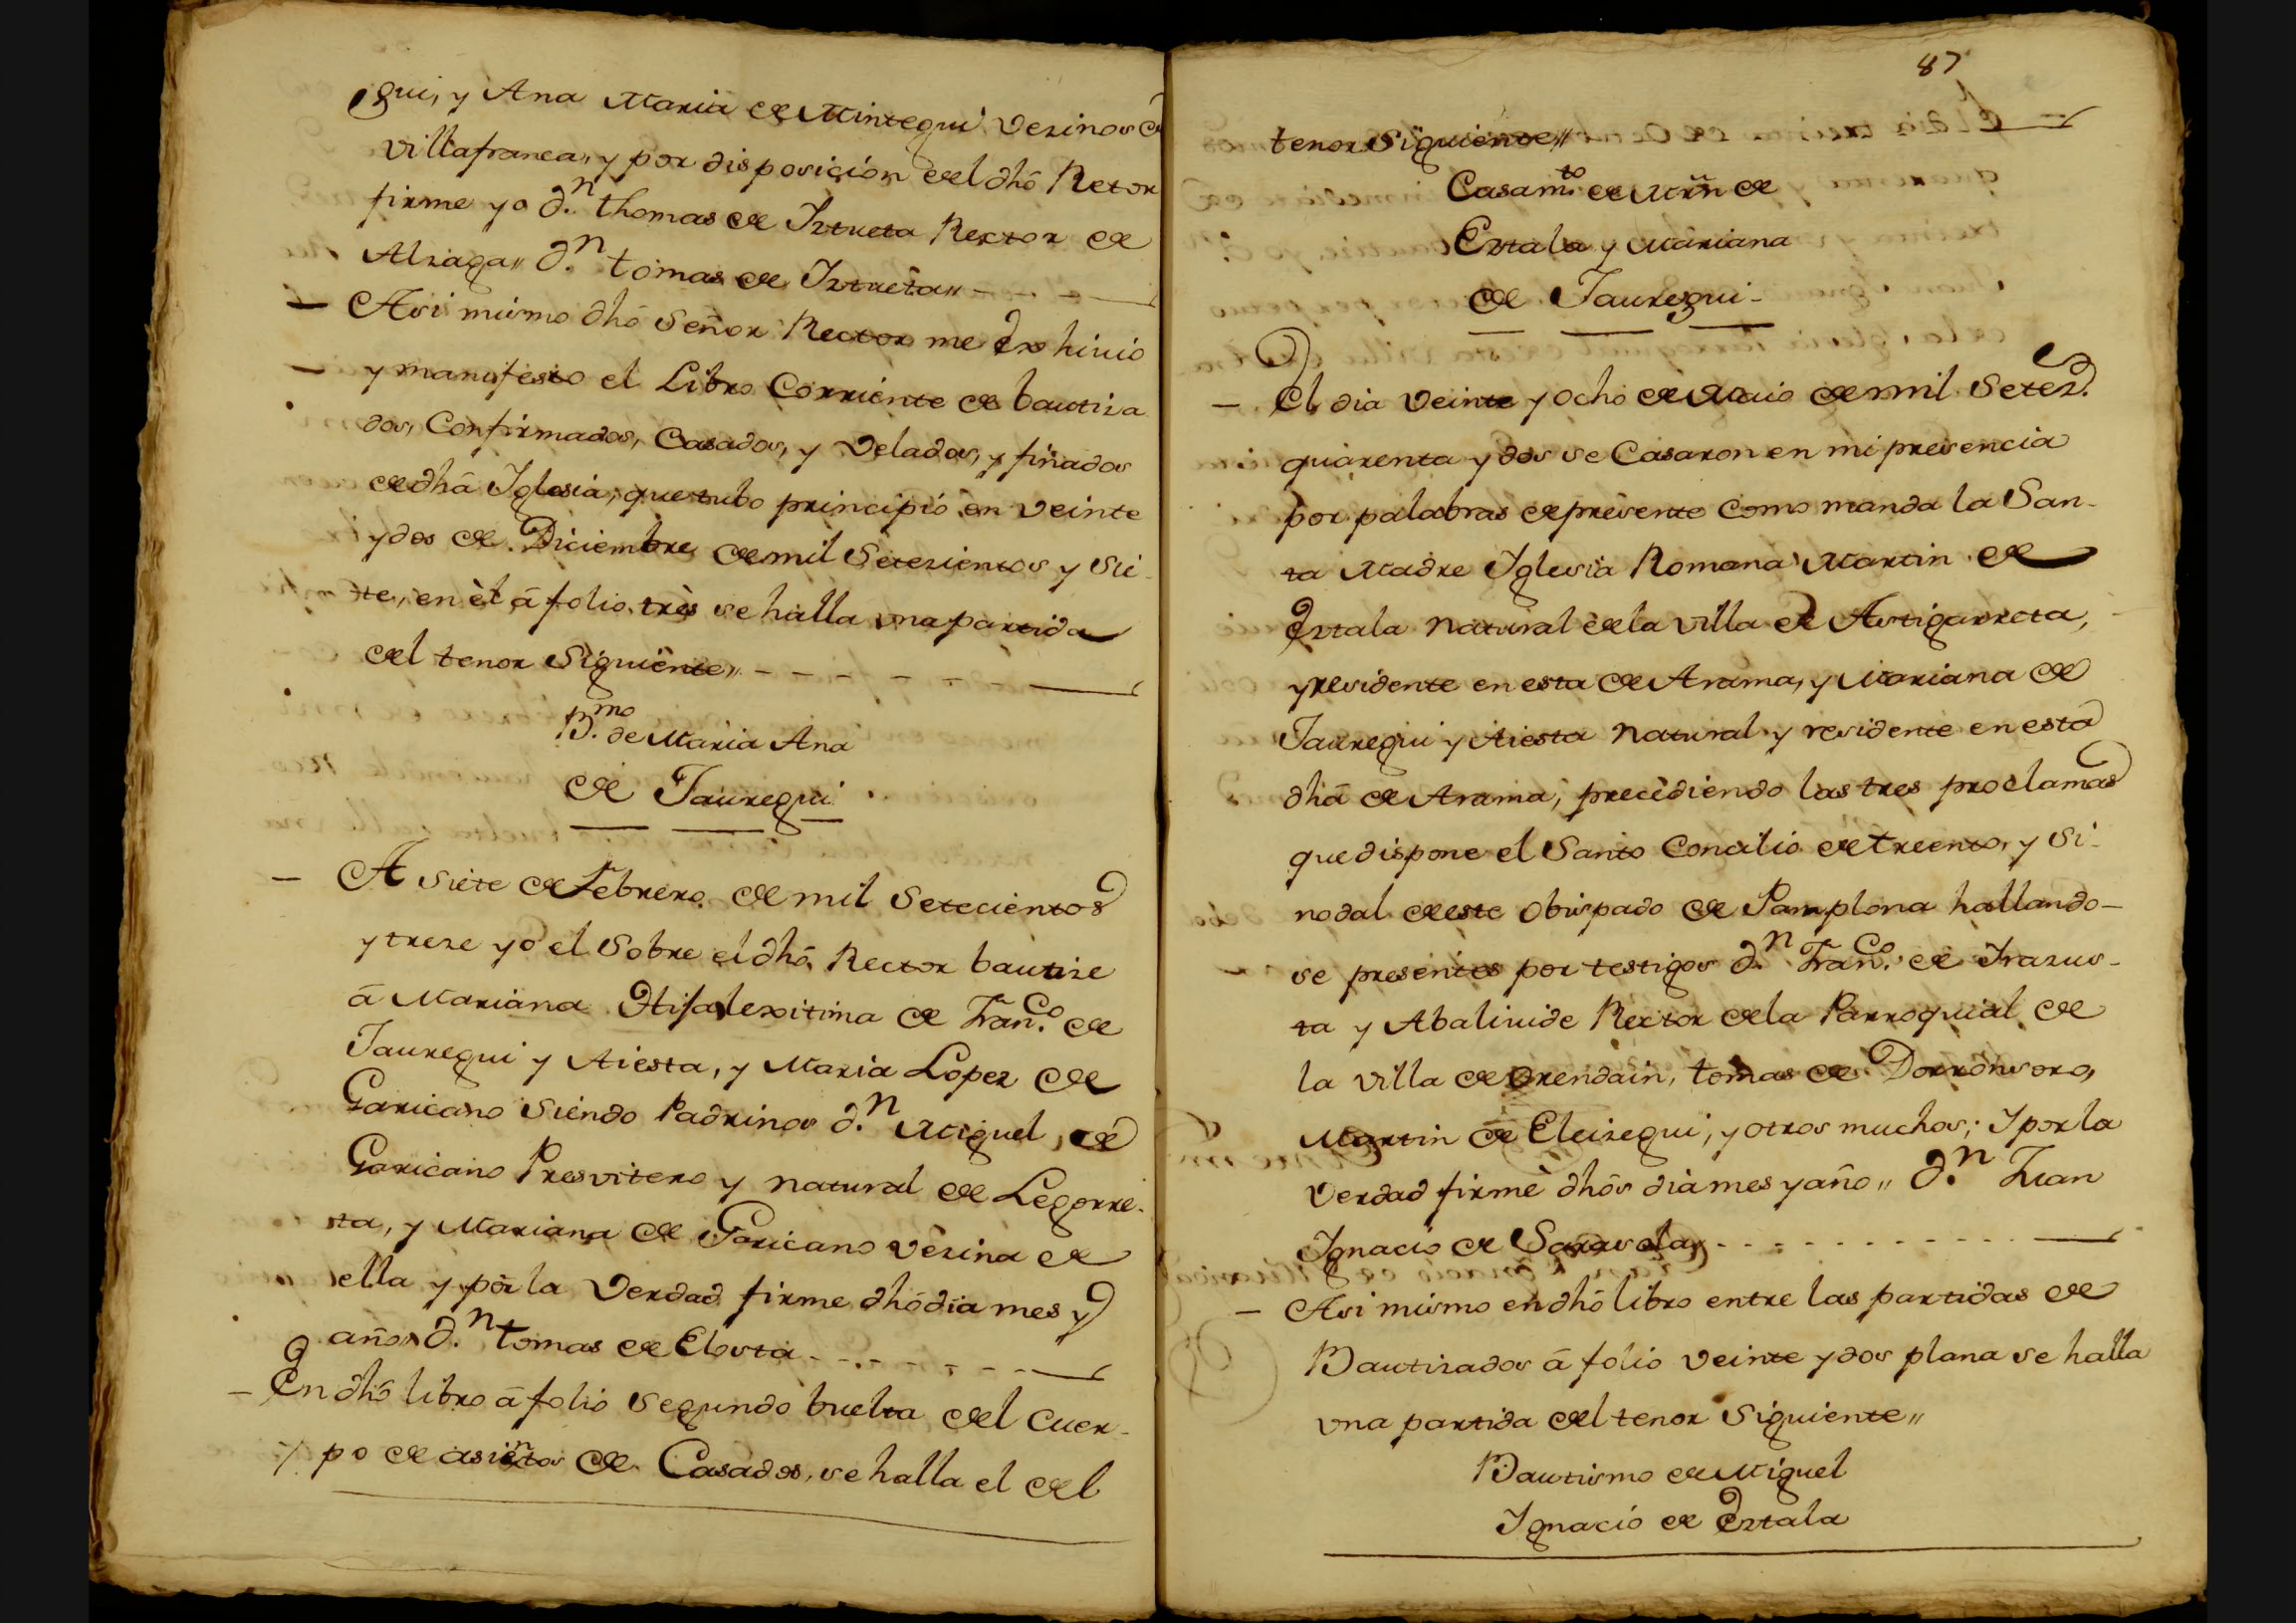 gui, y Ana Maria de Mintegui vezinos de
Villafranca,, y por disposición del dhõ Retor
firme yo d.n thomas de Iztueta Rector de
Alzaga,, d.n tomas de Iztueta,,
Asi mismo dhõ Señor Rector me Exhiuio
y manifesto el Libro Corriente de bautiza
dos, Confirmados, Casados, y Velados, y finados
de dhã Iglesia, que tubo principio en veinte
y dos de Diciembre de mil Setezientos y Sie
te, en èl â folio. tres se halla vna partida
del tenor Siguiente,,
B.mo de Maria Ana
de Jauregui
A siete de Febrero. de mil Setecientos
y treze yo el Sobre el dhõ Rector bautize
â Mariana Hija lexitima de Fran.co de
Jauregui y Aiesta, y Maria Lopez de
Garicano Siendo Padrinos d.n Miguel de
Garicano Presvitero y natural de Legorre-
ta, y Mariana de Garicano vezina de
ella y por la Verdad firme dhõ dia mes y
año,, d.n tomas de Elosta
En dhõ libro â folio Segundo buelta del Cuer-
po de asientos de Casados, se halla el del
87
tenor Siguiente,,
Casam.to de Mrñ de
Eztala y Mariana
de Jauregui-
El dia Veinte y ocho de Maio de mil Setez.s
quarenta y dos se Casaron en mi presencia
por palabras de presente como manda la San-
ta Madre Iglesia Romana Martin de
Eztala Natural de la villa de Astigarreta,
y residente en esta de Arama, y Mariana de
Jauregui y Aiesta Natural y residente en esta
dhã de Arama, precèdiendo las tres proclamas
que dispone el Santo Concilio de treento, y Si-
nodal de este Obispado de Pamplona hallando-
se presentes por testigos d.n Fran.co de Irazus-
ta y Abaliuide Rector de la Parroquial de
la villa de Orendain, tomas de Dorronsoro,
Martin de Eleizegui, y otros muchos; Y por la
Verdad firmè dhõs dia mes y año,, d.n Juan
Ignacio de Sarasola,,
Asi mismo en dhõ libro entre las partidas de
Bautizados â folio veinte y dos plana se halla
vna partida del tenor Siguiente,,
Bautismo de Miguel
Ignacio de Eztala